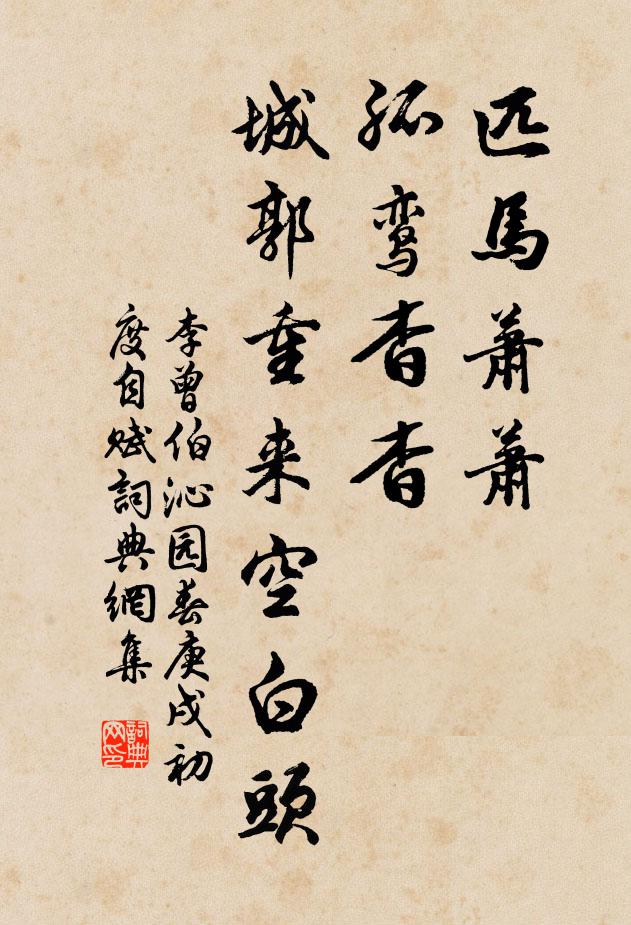 匹馬蕭蕭
孤鸾杳杳
城郭重来空白頭
李曾伯沁园春庚戌初
度自赋詞典網集
詞典网印